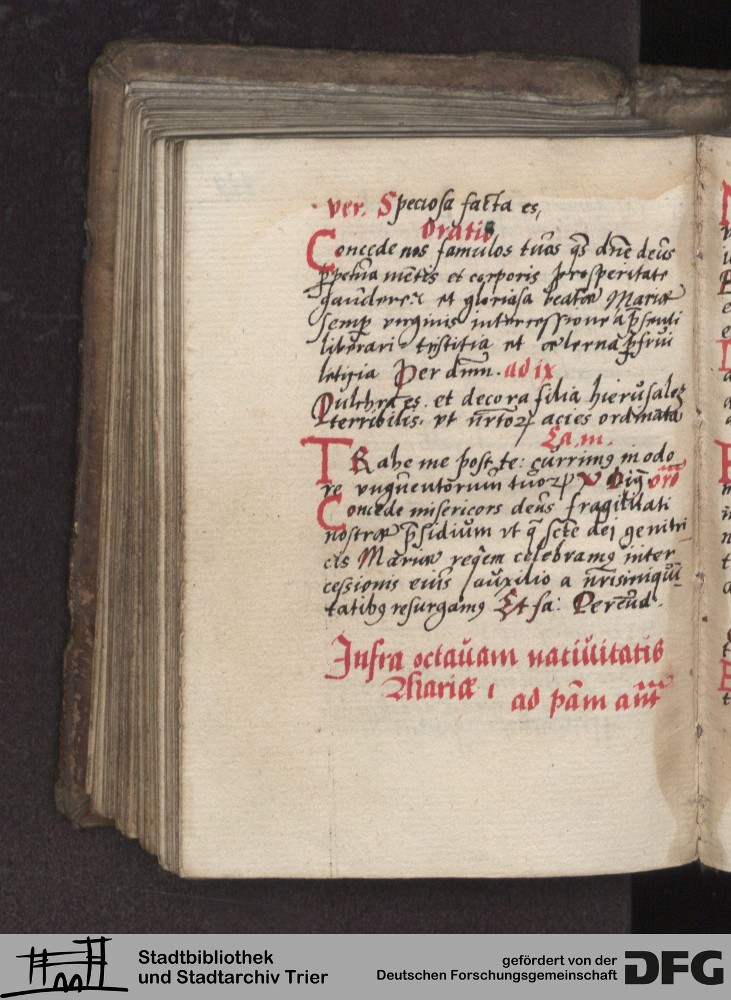 ver. Speciosa facta es,
Oratio
Concede nos famulos tuos q̄s dn̄e deus
ꝑpetua mētis et corporis prosperitate
gaudere: et gloriosa beatæ Mariæ
semꝑ virginis intercessione a p̄senti
liberari tristitia et æterna ꝑfrui
letitia Per dnm̄. ad ix
Pulchra es. et decora filia hierusalem
terribilis. vt castroꝝ acies ordinata
Ca. m.
TRahe me post te: currimꝰ in odo
re vnguentorum tuoꝝ ℣ Diḡ orō
Concede misericors deus fragilitati
nostræ p̄sidium vt q̄ scte dei genitri
cis Mariæ reqem celebramꝰ inter
cessionis eius auxilio a nr̄is iniqui
tatibꝰ resurgamꝰ Et fa: Per eūd.
Infra octauam natiuitatis
Mariæ ad pam ant̄
Stadtbibliothek
und Stadtarchiv Trier
gefördert von der
Deutschen Forschungsgemeinschaft
DFG